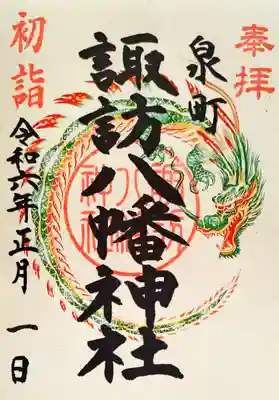 奉拝
泉町
諏訪八幡神社
初詣
令和六年正月一日